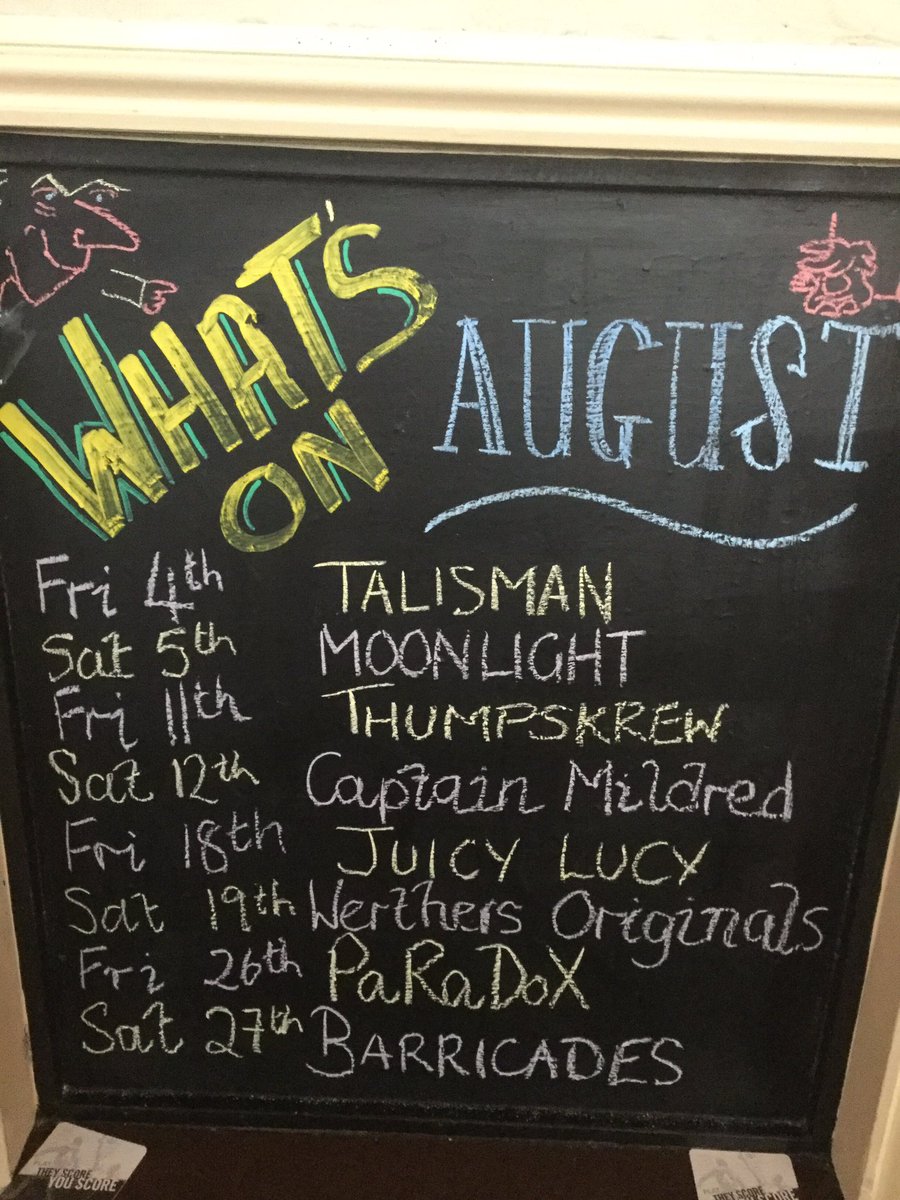 WHAT'S
ON
AUGUST
Fri 4th TALISMAN
Sat 5th MOONLIGHT
Fri 11th THUMPSKREW
Sat 12th Captain Mildred
Fri 18th JUICY LUCY
Sat 19th Werthers Originals
Fri 26th PaRaDoX
Sat 27th BARRICADES
THEY SCORE
YOU SCORE
THEY SCORE